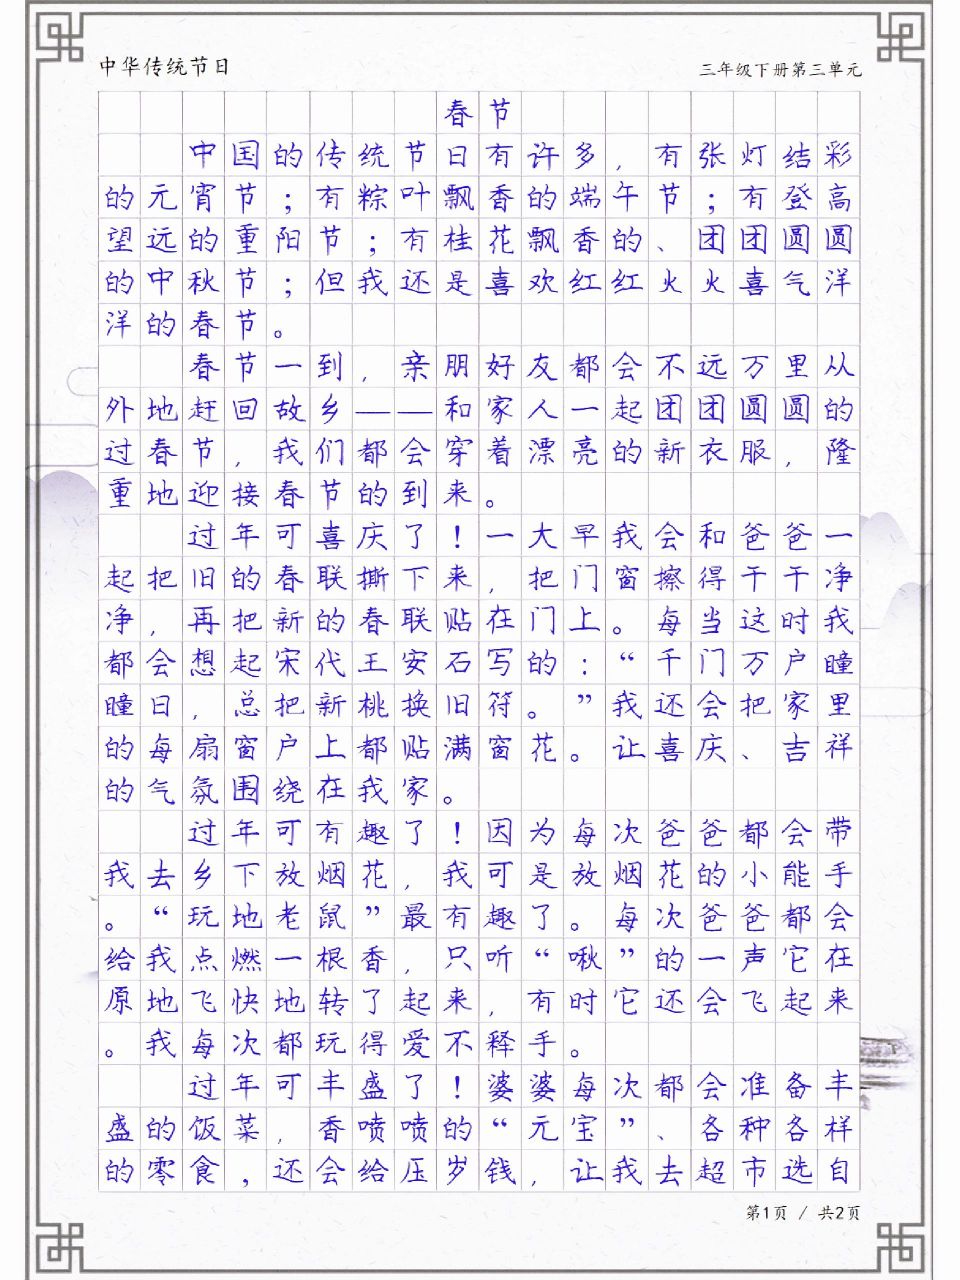 中华传统节日
三年级下册第三单元
春节
中国的传统节日有许多，有张灯结彩
的元宵节；有粽叶飘香的端午节；有登高
望远的重阳节；有桂花飘香的、团团圆圆
的中秋节；但我还是喜欢红红火火喜气洋
洋的春节。
春节一到，亲朋好友都会不远万里从
外地赶回故乡——和家人一起团团圆圆的
过春节，我们都会穿着漂亮的新衣服，隆
重地迎接春节的到来。
过年可喜庆了！一大早我会和爸爸一
起把旧的春联撕下来，把门窗擦得干干净
净，再把新的春联贴在门上。每当这时我
都会想起宋代王安石写的：“千门万户瞳
瞳日，总把新桃换旧符。”我还会把家里
的每扇窗户上都贴满窗花。让喜庆、吉祥
的气氛围绕在我家。
过年可有趣了！因为每次爸爸都会带
我去乡下放烟花，我可是放烟花的小能手
。“玩地老鼠”最有趣了。每次爸爸都会
给我点燃一根香，只听“啾”的一声它在
原地飞快地转了起来，有时它还会飞起来
。我每次都玩得爱不释手。
过年可丰盛了！婆婆每次都会准备丰
盛的饭菜，香喷喷的“元宝”、各种各样
的零食，还会给压岁钱，让我去超市选自
第1页 / 共2页